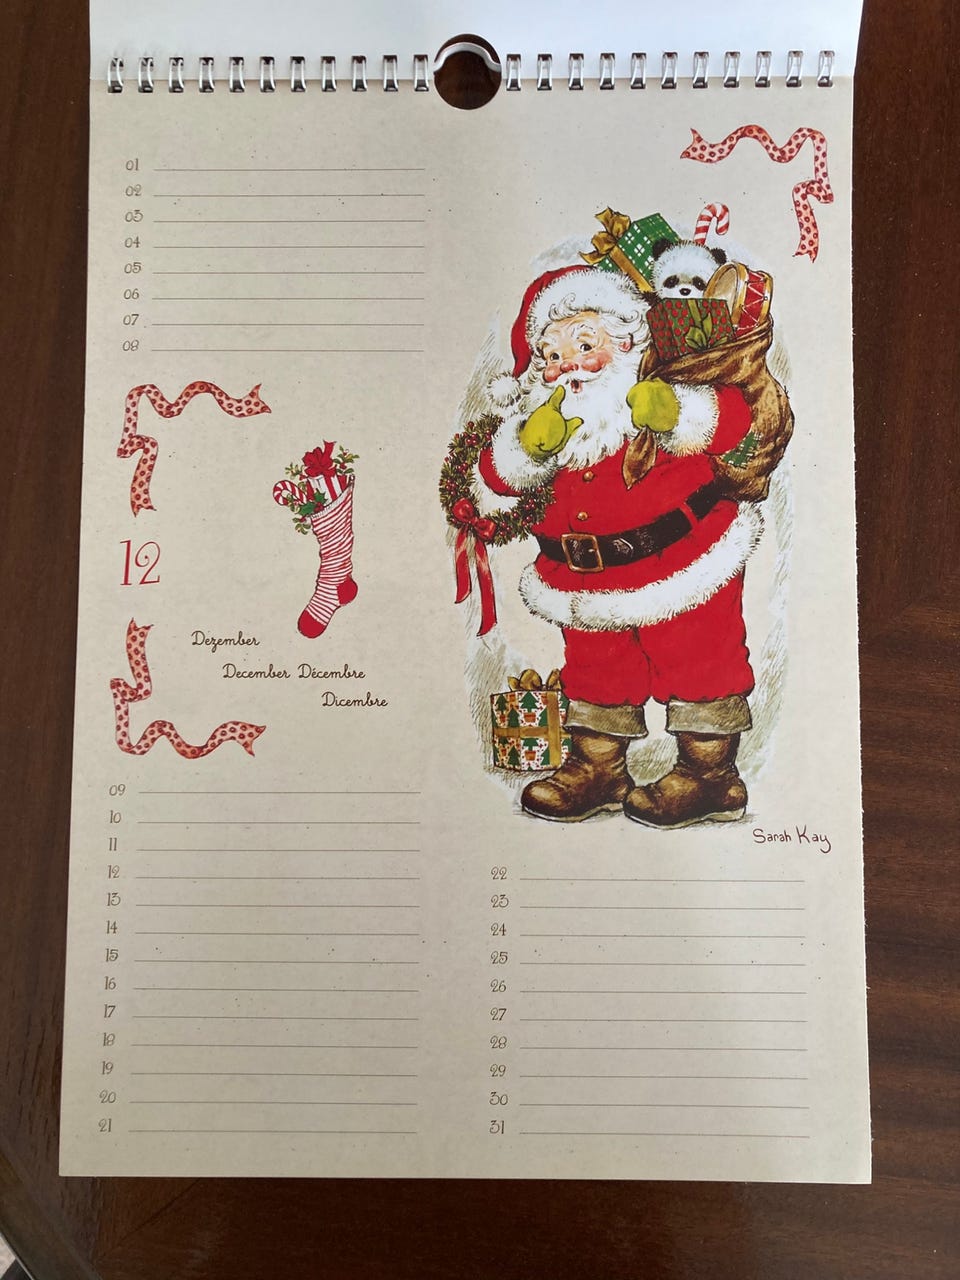 01
02
03
04
05
06
07
08
12
Dezember
December Décembre
Dicembre
Sarah Kay
09
10
11
12
13
14
15
16
17
18
19
20
21
22
23
24
25
26
27
28
29
30
31